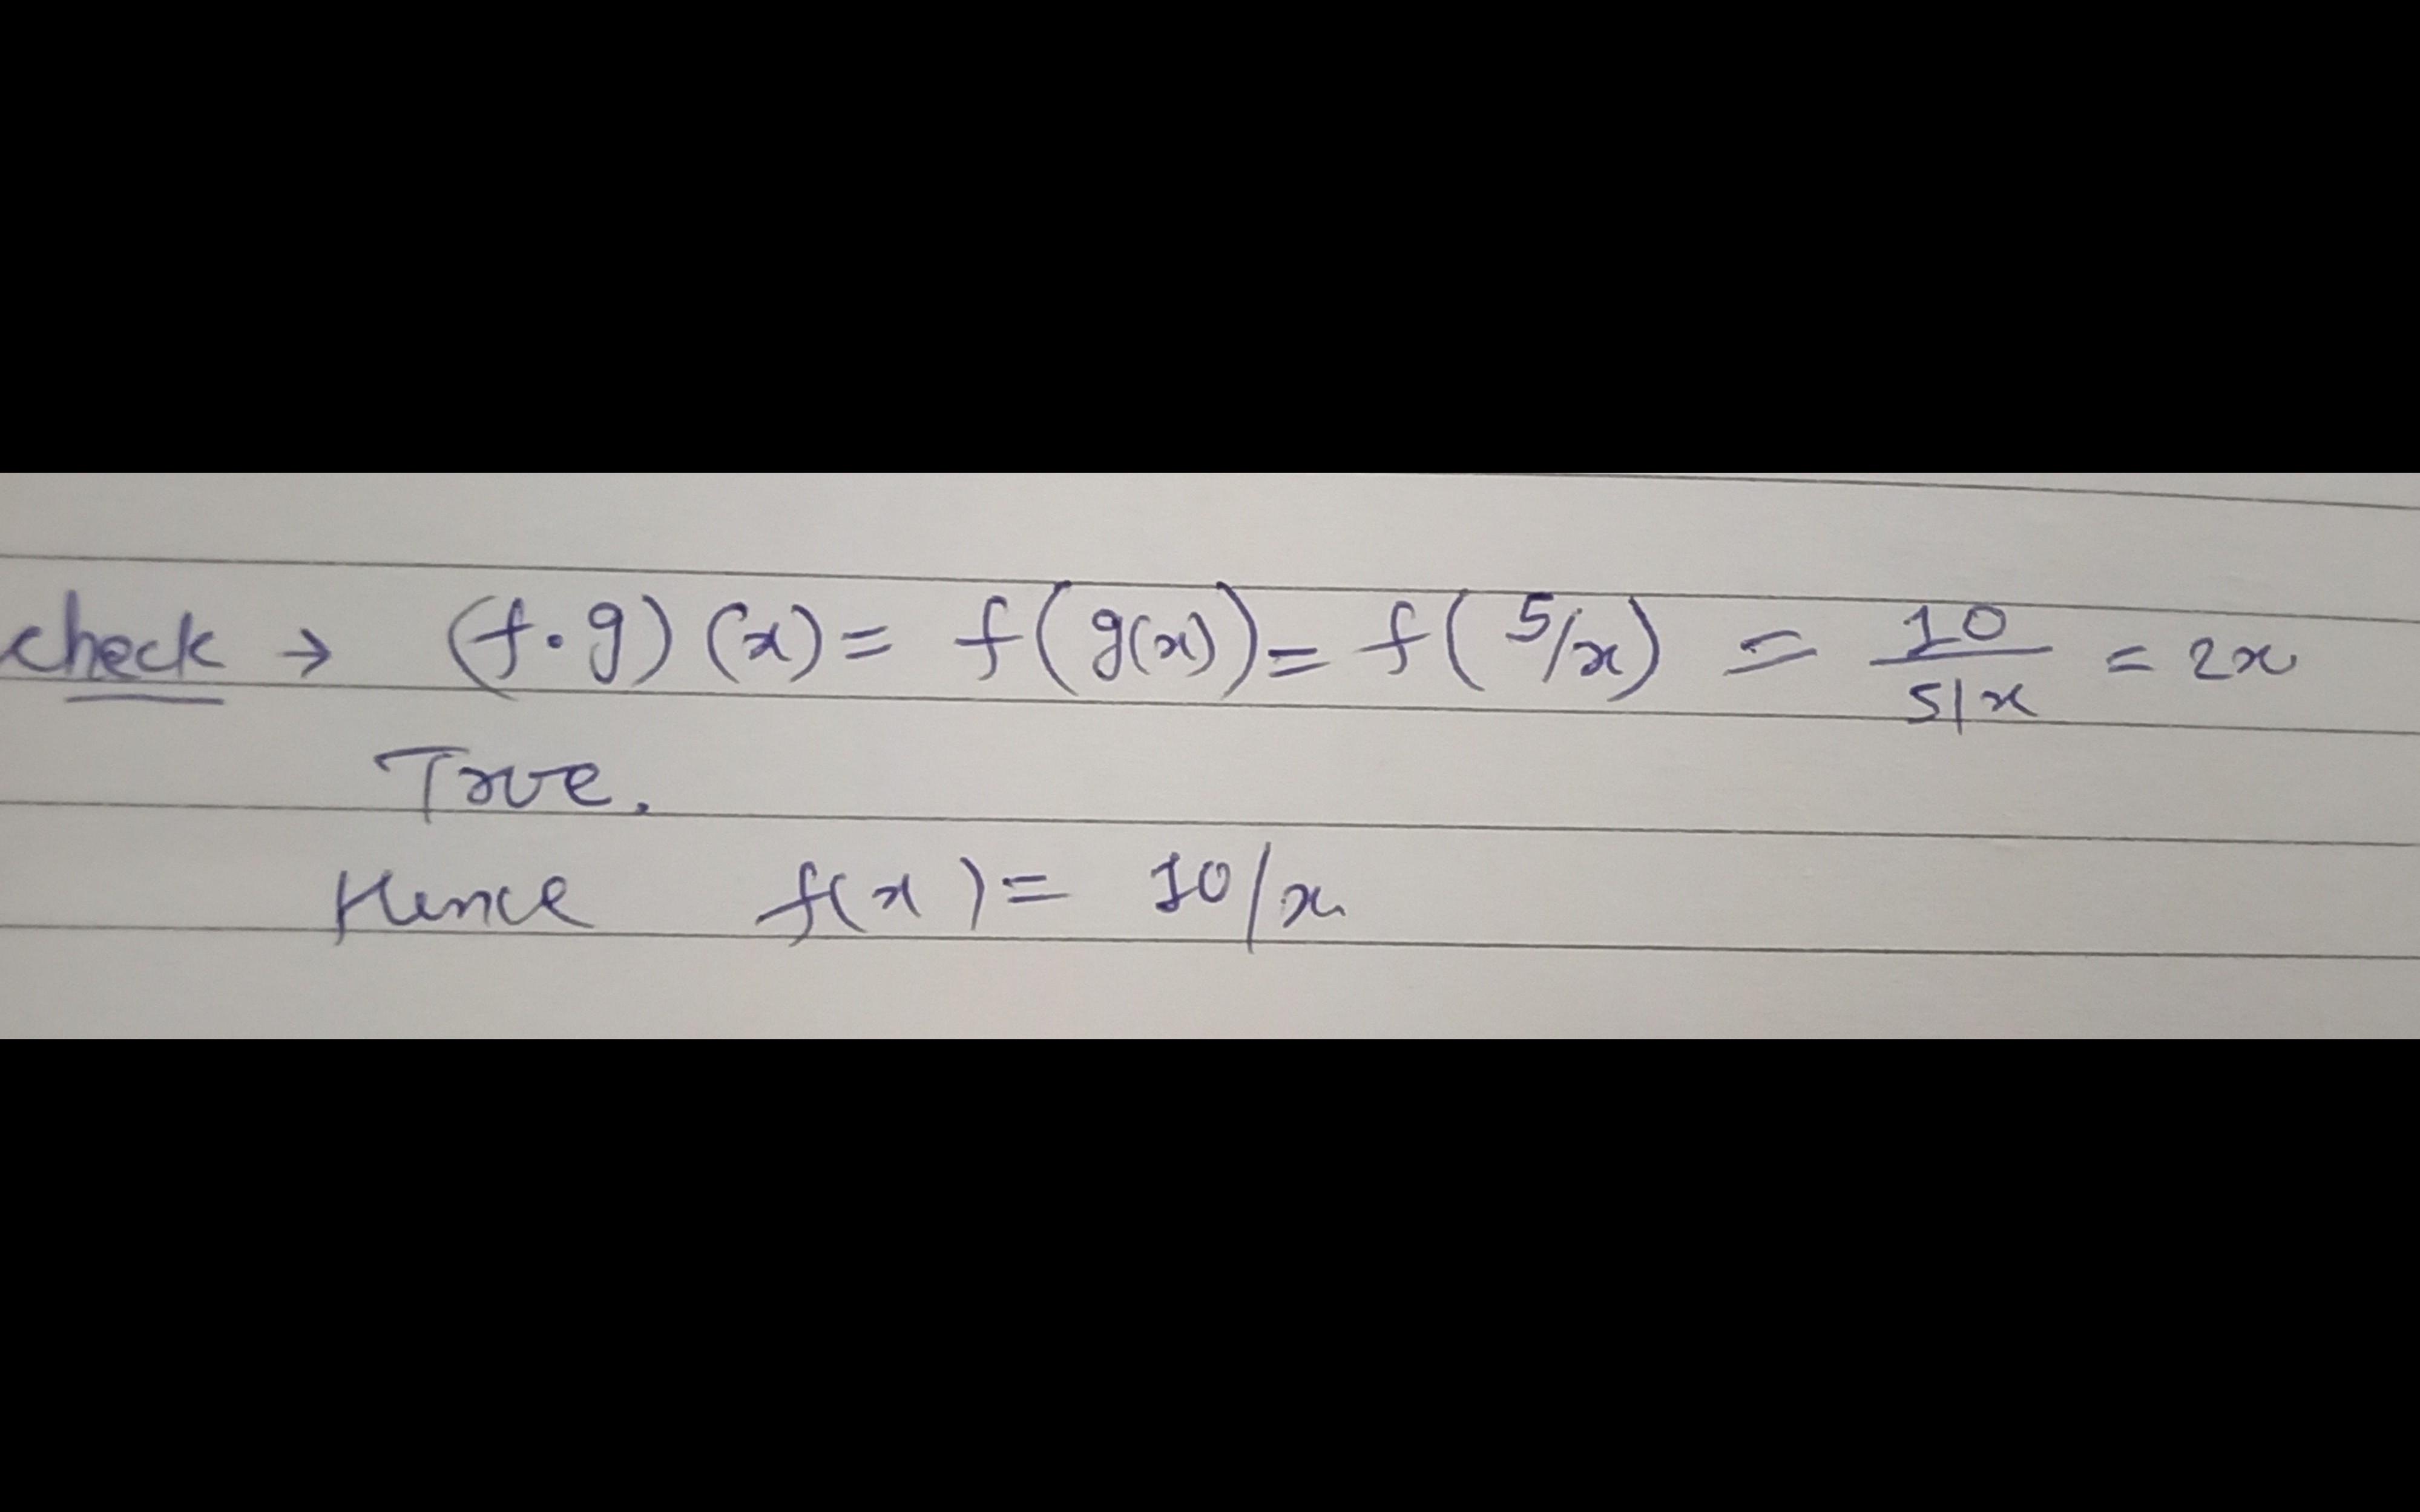 check → (f.g)(x) = f(g(x)) = f(5/x) = 10/5/x = 2x
True.
Hence f(x) = 10/x